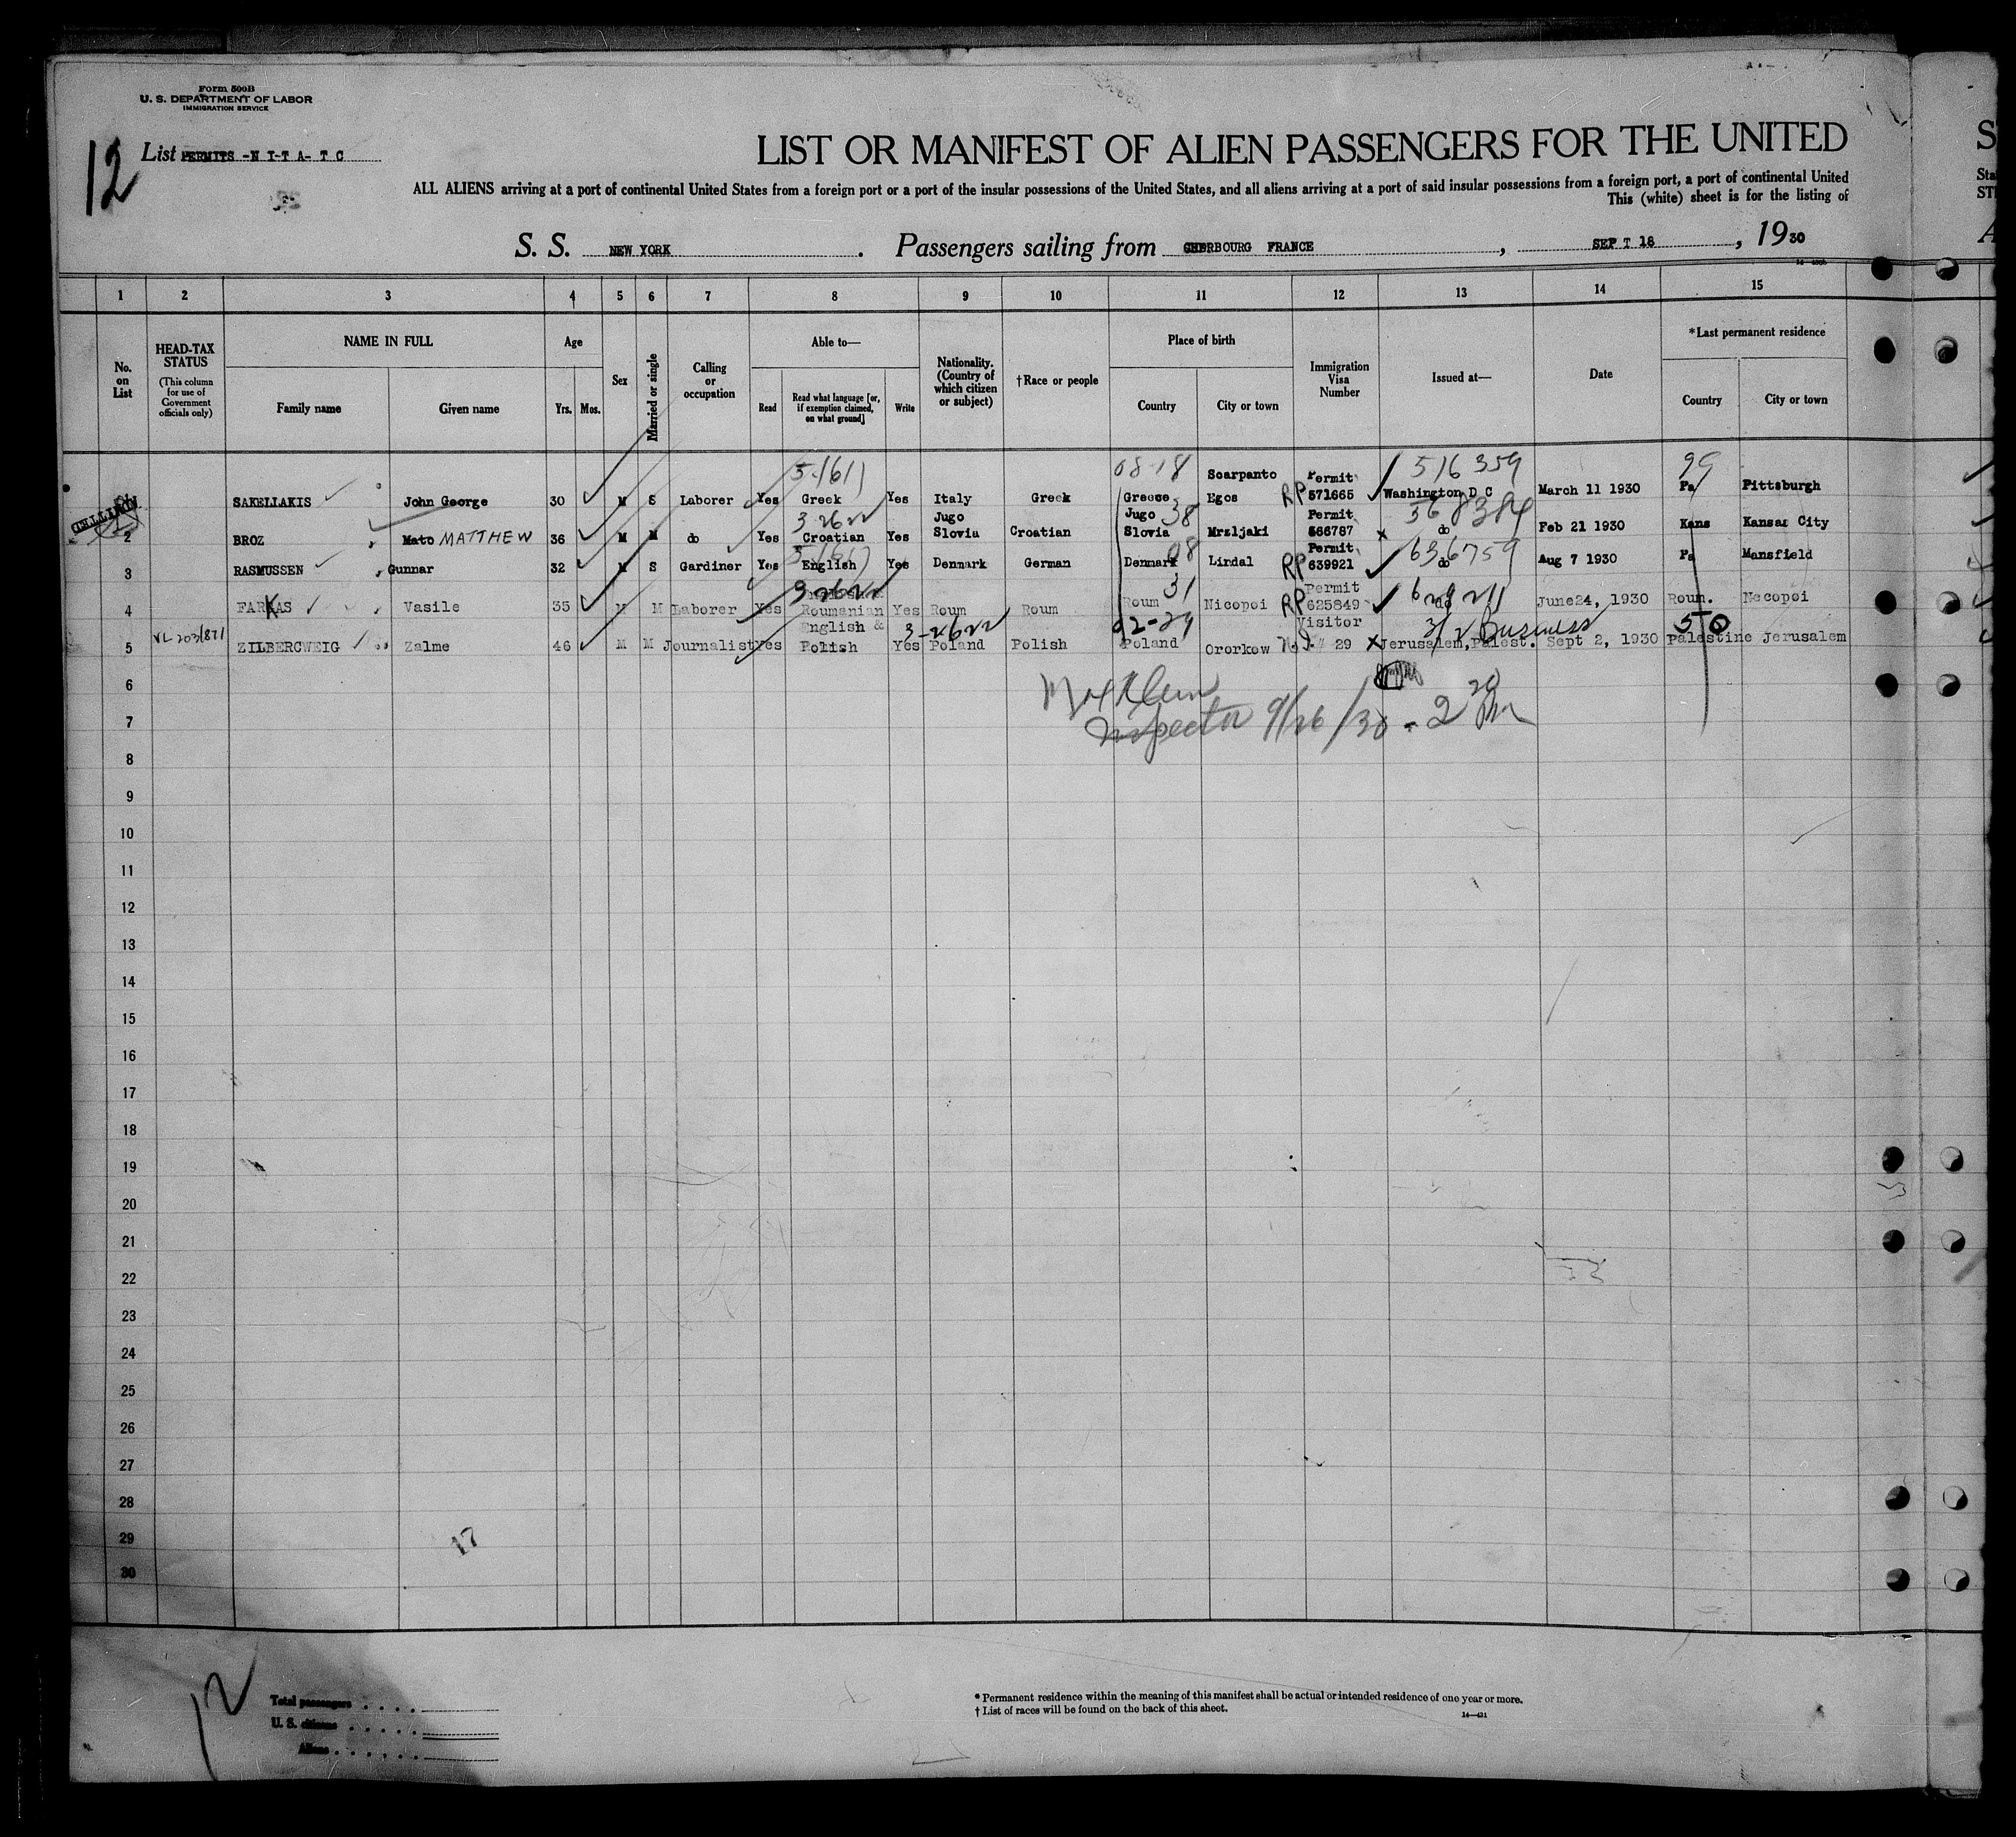 Form 500B
U. S. DEPARTMENT OF LABOR
IMMIGRATION SERVICE
12
List PERMITS -N I-T A- T C
LIST OR MANIFEST OF ALIEN PASSENGERS FOR THE UNITED
ALL ALIENS arriving at a port of continental United States from a foreign port or a port of the insular possessions of the United States, and all aliens arriving at a port of said insular possessions from a foreign port, a port of continental United
This (white) sheet is for the listing of
S. S. NEW YORK . Passengers sailing from CHERBOURG FRANCE , SEPT 18 , 1930
1 2 3 4 5 6 7 8 9 10 11 12 13 14 15
No. on List
HEAD-TAX STATUS
(This column for use of Government officials only)
NAME IN FULL
Family name Given name
Age
Yrs. Mos.
Sex
Married or single
Calling or occupation
Able to—
Read
Read what language [or, if exemption claimed, on what ground]
Write
Nationality. (Country of which citizen or subject)
†Race or people
Place of birth
Country City or town
Immigration Visa Number
Issued at—
Date
*Last permanent residence
Country City or town
5-(61) 08-18 Scarpanto Permit 516 359 99
SAKELLAKIS John George 30 M S Laborer Yes Greek Yes Italy Greek Greece Egos RP 571665 Washington D C March 11 1930 Pa Pittsburgh
3-26 Jugo Jugo 38 Permit 568384
2 BROZ Mato MATTHEW 36 M M do Yes Croatian Yes Slovia Croatian Slovia Mrzljaki 566787 x do Feb 21 1930 Kans Kansas City
5-(61) 08 Permit 636759
3 RASMUSSEN Gunnar 32 M S Gardiner Yes English Yes Denmark German Denmark Lindal RP 639921 do Aug 7 1930 Pa Mansfield
31 Permit
4 FARKAS Vasile 35 M M Laborer Yes Roumanian Yes Roum Roum Roum Nicopoi RP 625849 do June24, 1930 Roum. Nocopoi
VL 203/871 English & Visitor 3/2 Business 50
5 ZILBERCWEIG Zalme 46 M M Journalist Yes Polish Yes Poland Polish Poland Ororkow 29 x Jerusalem, Palest. Sept 2, 1930 Palestine Jerusalem
6
Max Klein
7
Inspector 9/26/30 - 2 20 PM
8
9
10
11
12
13
14
15
16
17
18
19
20
21
22
23
24
25
26
27
28
29
17
30
12
Total passengers
U. S. citizens
Aliens
* Permanent residence within the meaning of this manifest shall be actual or intended residence of one year or more.
† List of races will be found on the back of this sheet.
14—431